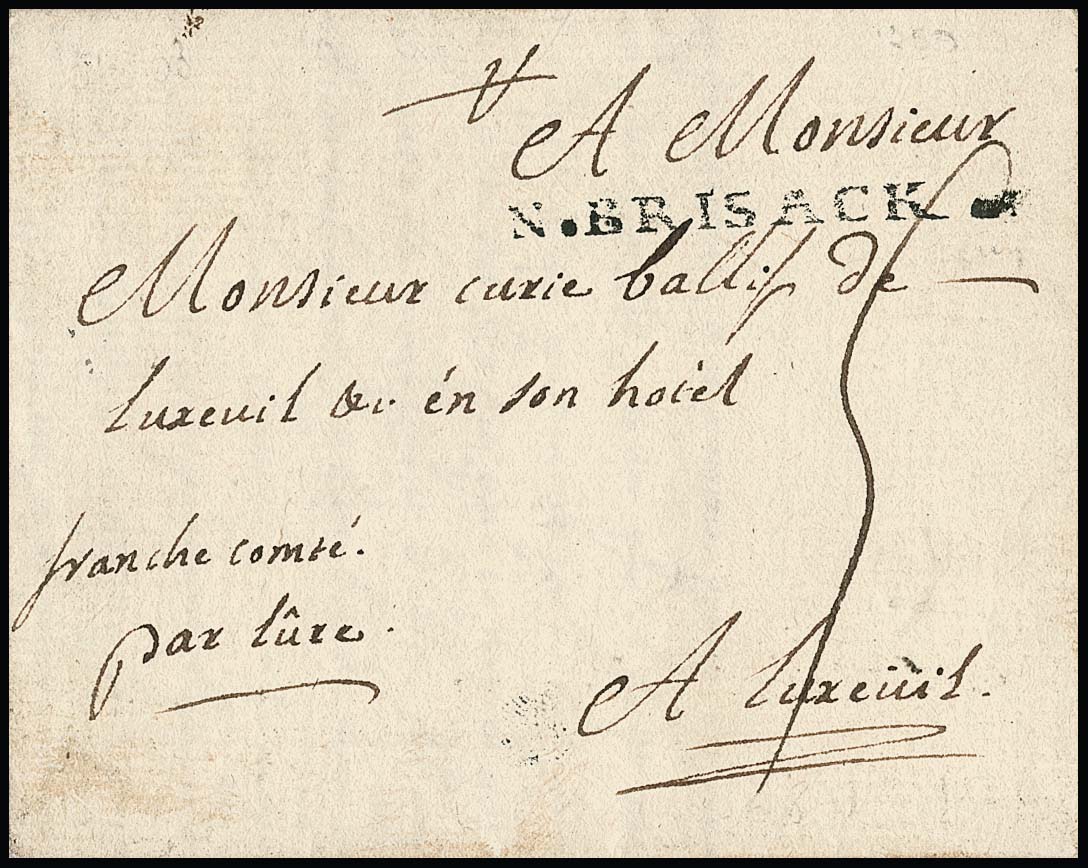 A Monsieur
N.BRISACK
Monsieur curie ballif de
luxeuil &c. én son hotél
franche comté.
par lûre.
A luxeüil.